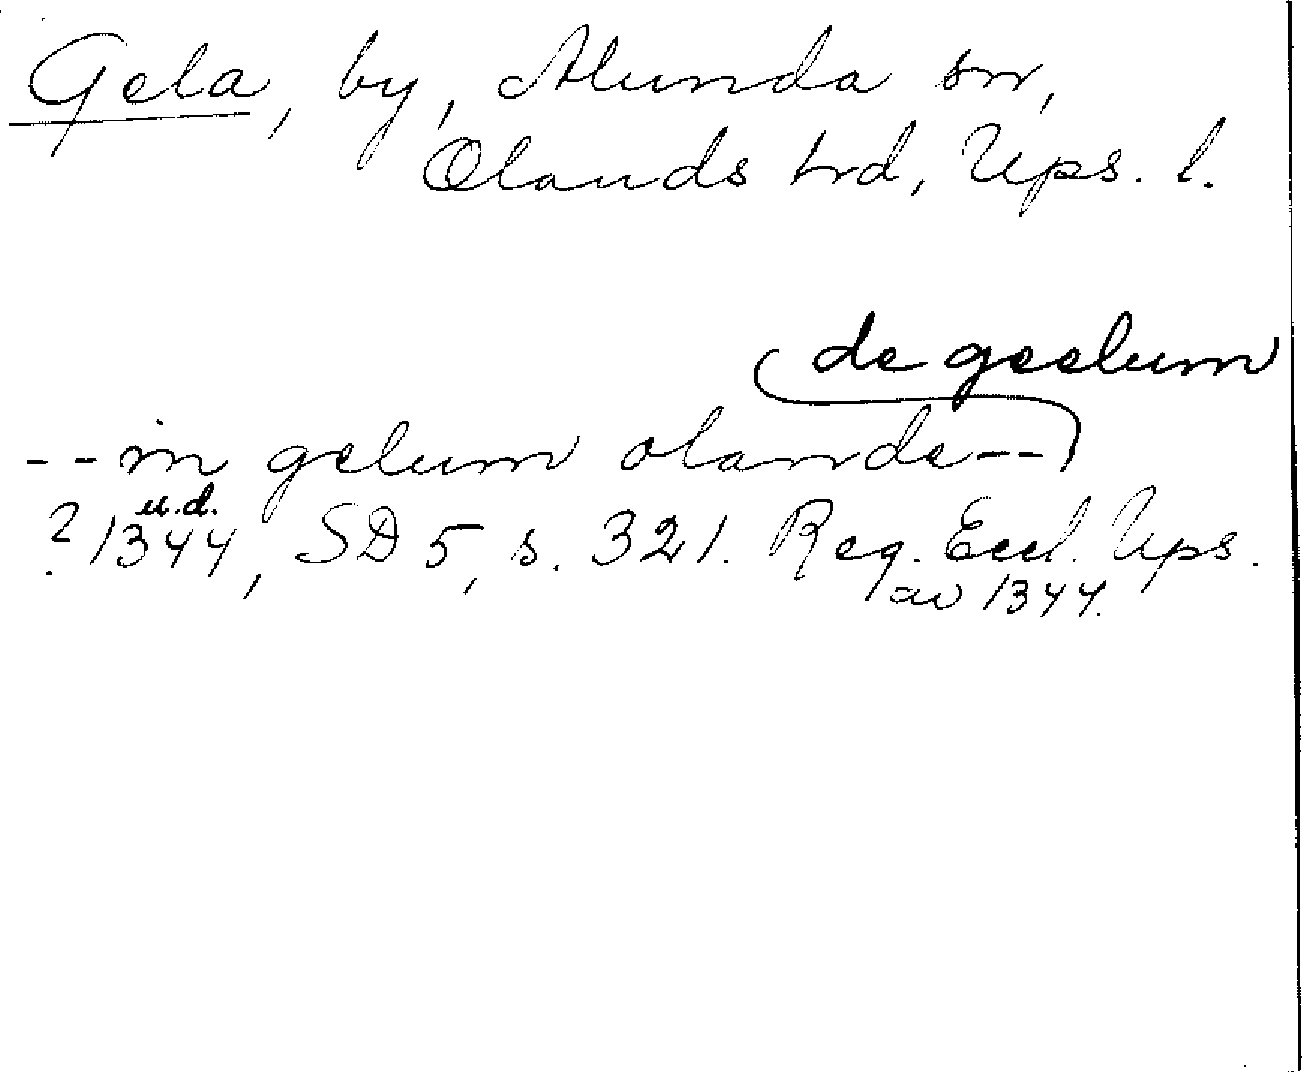 Gela, by, Alunda sn,
Olands hrd, Ups. l.
de geelum
--in gelum olande--
? 1344, u.d. SD 5, s. 321. Reg. Eccl. Ups.
av 1344.